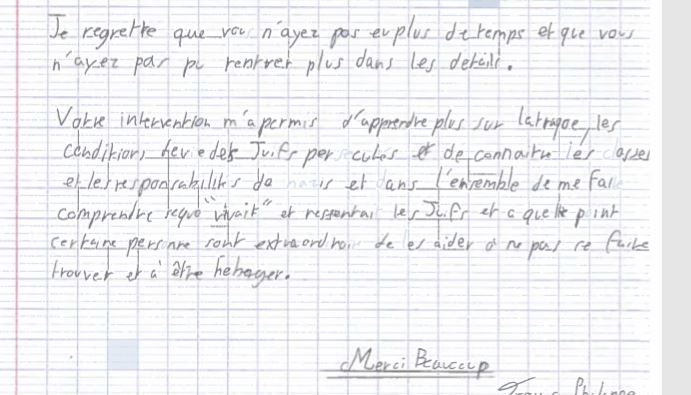 Je regrette que vous n'ayez pas eu plus de temps et que vous
n'ayez pas pu rentrer plus dans les details.
Votre intervention m'a permis d'apprendre plus sur la traque, les
condition, de vie des Juifs persecutés et de connaitre les classes
et les responsabilités de nazis et dans l'ensemble de me faire
comprendre se que "vivait" et ressentai les Juifs et a quelle point
certaine personne sont extraordinair de les aider a ne pas se faire
trouver et à être heberger.
Merci Beaucoup
Philippe